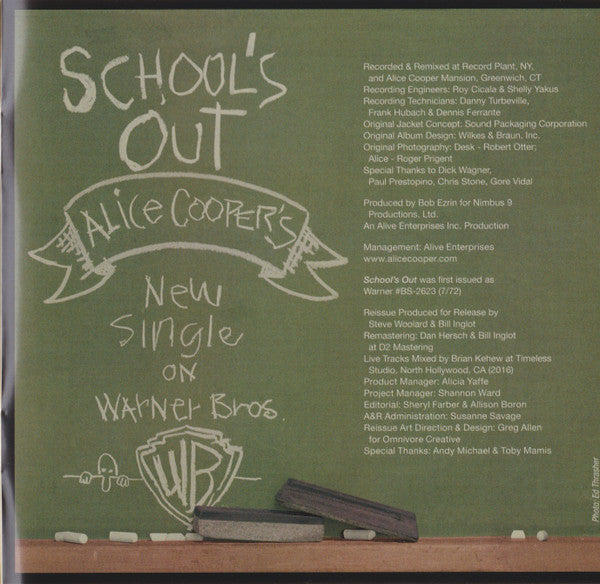 SCHOOL'S
OUT
ALICE COOPER'S
New
Single
ON
WARNER BROS.
WB
Recorded & Remixed at Record Plant, NY,
and Alice Cooper Mansion, Greenwich, CT
Recording Engineers: Roy Cicala & Shelly Yakus
Recording Technicians: Danny Turbeville,
Frank Hubach & Dennis Ferrante
Original Jacket Concept: Sound Packaging Corporation
Original Album Design: Wilkes & Braun, Inc.
Original Photography: Desk - Robert Otter;
Alice - Roger Prigent
Special Thanks to Dick Wagner,
Paul Prestopino, Chris Stone, Gore Vidal
Produced by Bob Ezrin for Nimbus 9
Productions, Ltd.
An Alive Enterprises Inc. Production
Management: Alive Enterprises
www.alicecooper.com
School's Out was first issued as
Warner #BS-2623 (7/72)
Reissue Produced for Release by
Steve Woolard & Bill Inglot
Remastering: Dan Hersch & Bill Inglot
at D2 Mastering
Live Tracks Mixed by Brian Kehew at Timeless
Studio, North Hollywood, CA (2016)
Product Manager: Alicia Yaffe
Project Manager: Shannon Ward
Editorial: Sheryl Farber & Allison Boron
A&R Administration: Susanne Savage
Reissue Art Direction & Design: Greg Allen
for Omnivore Creative
Special Thanks: Andy Michael & Toby Mamis
Photo: Ed Thrasher